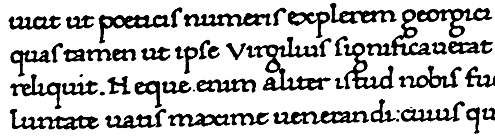 uicit ut poeticiſ numeriſ explerem georgici
quaſ tamen ut ipſe Virgiliuſ ſignificauerat
reliquit. Neque enim aliter iſtud nobiſ fu
luntate uatiſ maxime uenerandi: cuiuſ qu